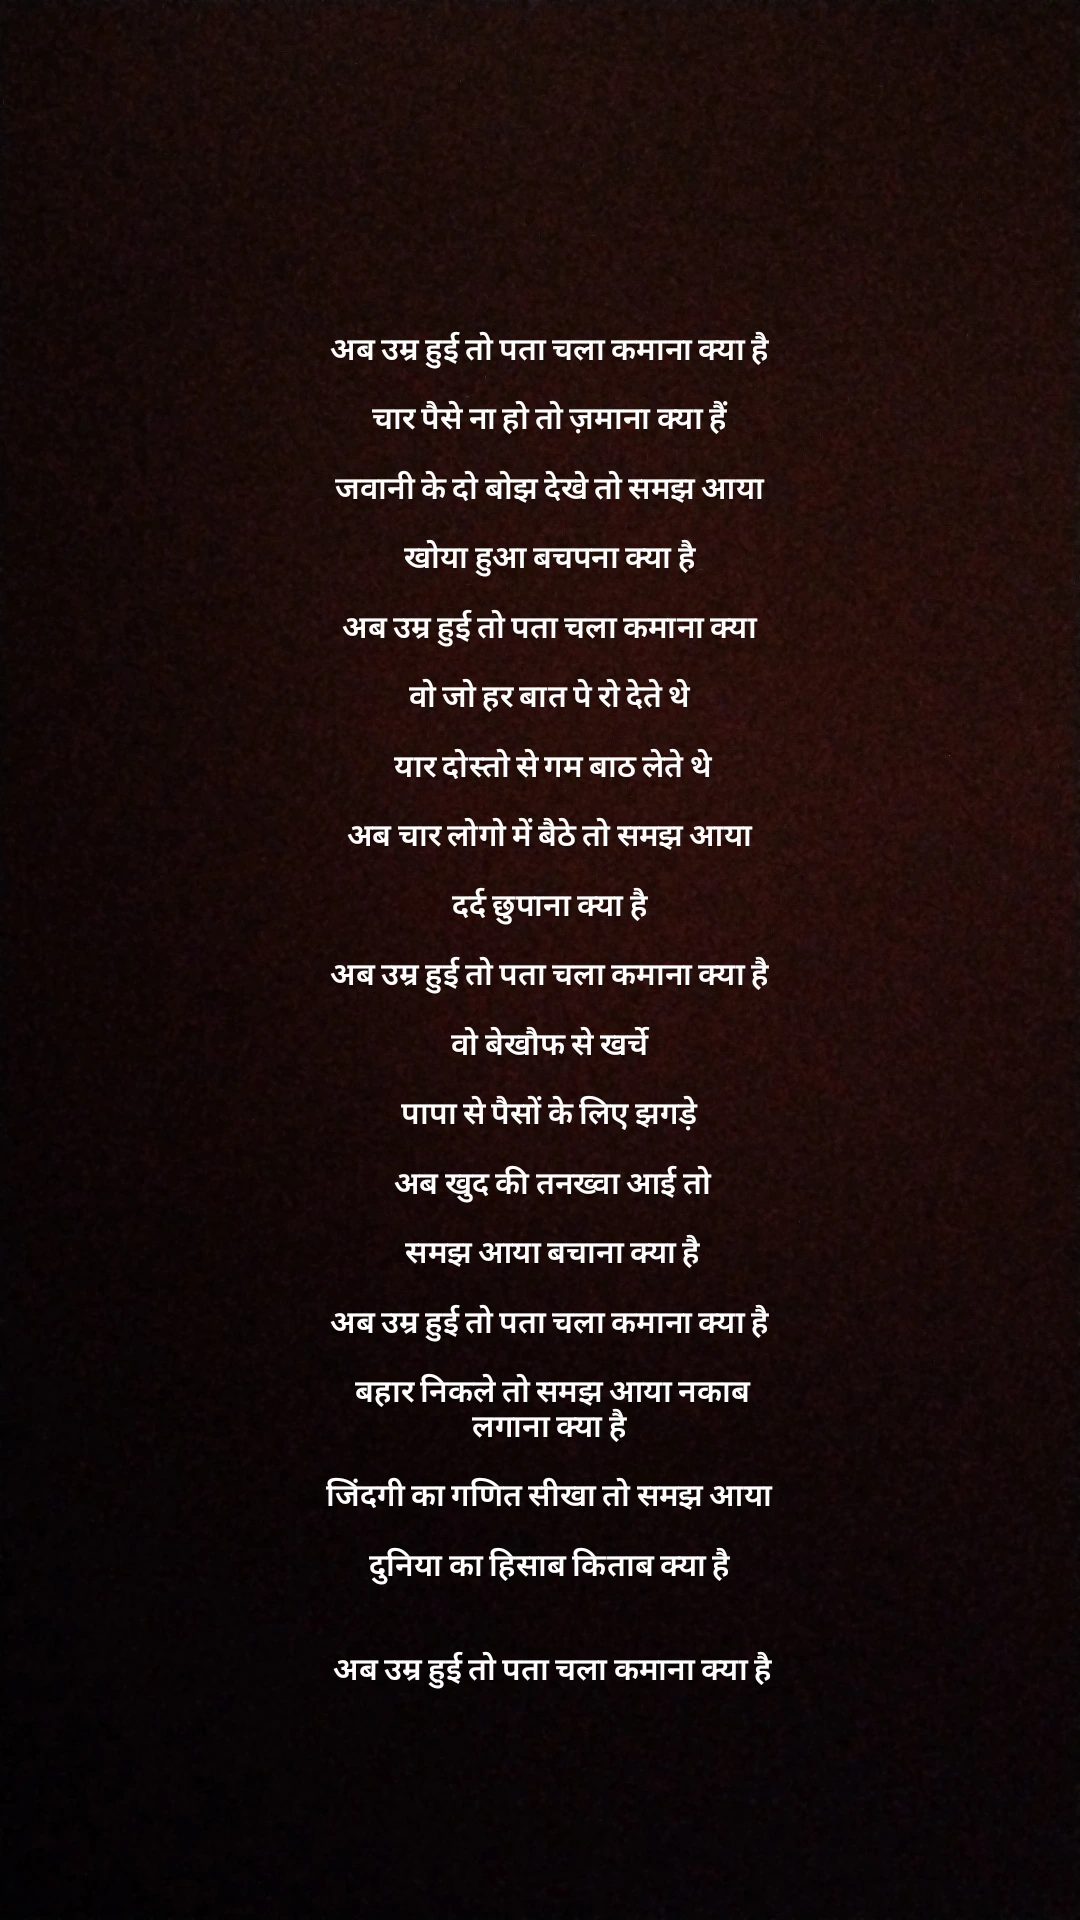 अब उम्र हुई तो पता चला कमाना क्या है
चार पैसे ना हो तो ज़माना क्या हैं
जवानी के दो बोझ देखे तो समझ आया
खोया हुआ बचपना क्या है
अब उम्र हुई तो पता चला कमाना क्या
वो जो हर बात पे रो देते थे
यार दोस्तो से गम बाठ लेते थे
अब चार लोगो में बैठे तो समझ आया
दर्द छुपाना क्या है
अब उम्र हुई तो पता चला कमाना क्या है
वो बेखौफ से खर्चे
पापा से पैसों के लिए झगड़े
अब खुद की तनख्वा आई तो
समझ आया बचाना क्या है
अब उम्र हुई तो पता चला कमाना क्या है
बहार निकले तो समझ आया नकाब
लगाना क्या है
जिंदगी का गणित सीखा तो समझ आया
दुनिया का हिसाब किताब क्या है
अब उम्र हुई तो पता चला कमाना क्या है